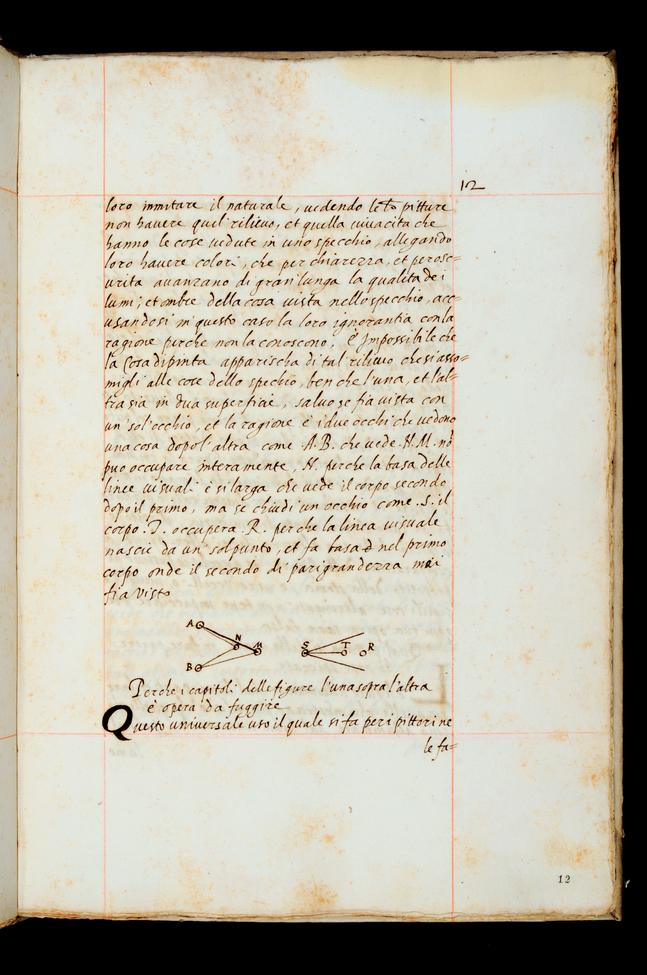 12
loro immitare il naturale, vedendo le ło pitture
non havere quel rilievo, et quella vivacita che
hanno le cose vedute in uno specchio, allegando
loro havere colori, che per chiarezza, et per osc=
urita avanzano di gran lunga la qualita de i
lumi; et ombre della cosa vista nello specchio, acc=
usandosi in questo caso la loro ignorantia con la
ragione perche non la conoscono, è impossibile che
la cosa dipinta apparischa di tal rilievo che si asso=
migli alle cose dello spechio, ben che l'una, et l'al=
tra sia in sua superficie, salvo se fia vista con
un' sol' occhio, et la ragione è i due occhi che vedono
una cosa dopo l' altra come .A.B. che vede .N.M. nō
puo occupare interamente, N. perche la basa delle
linee visuali è si larga che vede il corpo secondo
dopo il primo, ma se chiudi un occhio come .S. il
corpo .T. occupera .R. perche la linea visuale
nascie da un' sol punto, et fa basa nel primo
corpo onde il secondo di pari grandezza mai
fia visto
A N M B S T R
Perche i capitoli delle figure l'una sopra l'altra
è opera da fuggire
Questo universale uso il quale si fa per i pittori ne
le fa=
12